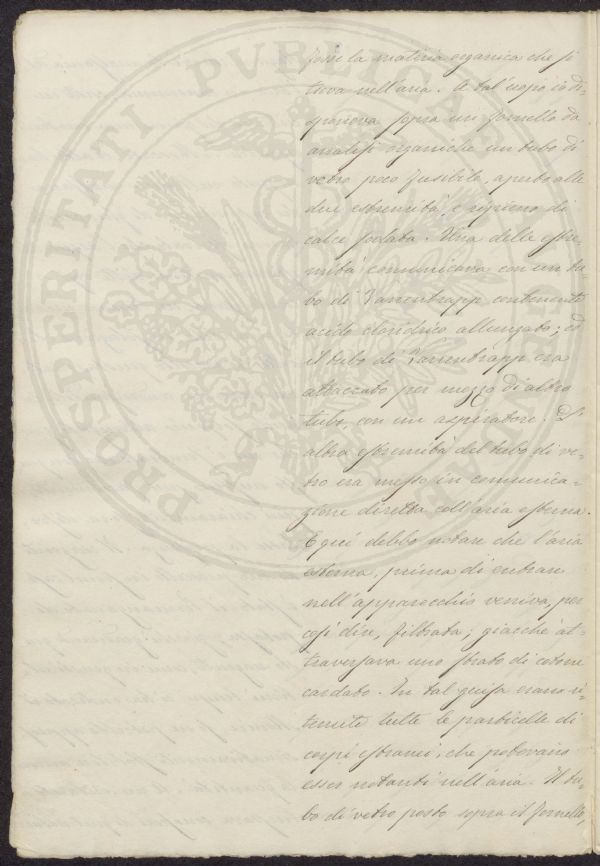 PROSPERITATI PVBLICAE
fosse la materia organica che si
trova nell'aria. A tal uopo io di-
sponeva sopra un fornello da
analisi organiche un tubo di
vetro poco fusibile, aperto alle
due estremità, e ripieno di
calce sodata. Una delle estre-
mità comunicava con un tu-
bo di Varrentrapp contenente
acido cloridrico allungato; ed
il tubo di Varrentrapp era
attaccato per mezzo di altro
tubo, con un aspiratore. L'
altra estremità del tubo di ve-
tro era messo in comunica-
zione diretta coll'aria esterna.
E qui debbo notare che l'aria
esterna, prima di entrare
nell'apparecchio veniva, per
così dire, filtrata; giacchè at-
traversava uno strato di cotone
cardato. In tal guisa erano ri-
tenute tutte le particelle di
corpi estranei, che potevano
esser notanti nell'aria. Il tu-
bo di vetro posto sopra il fornello,